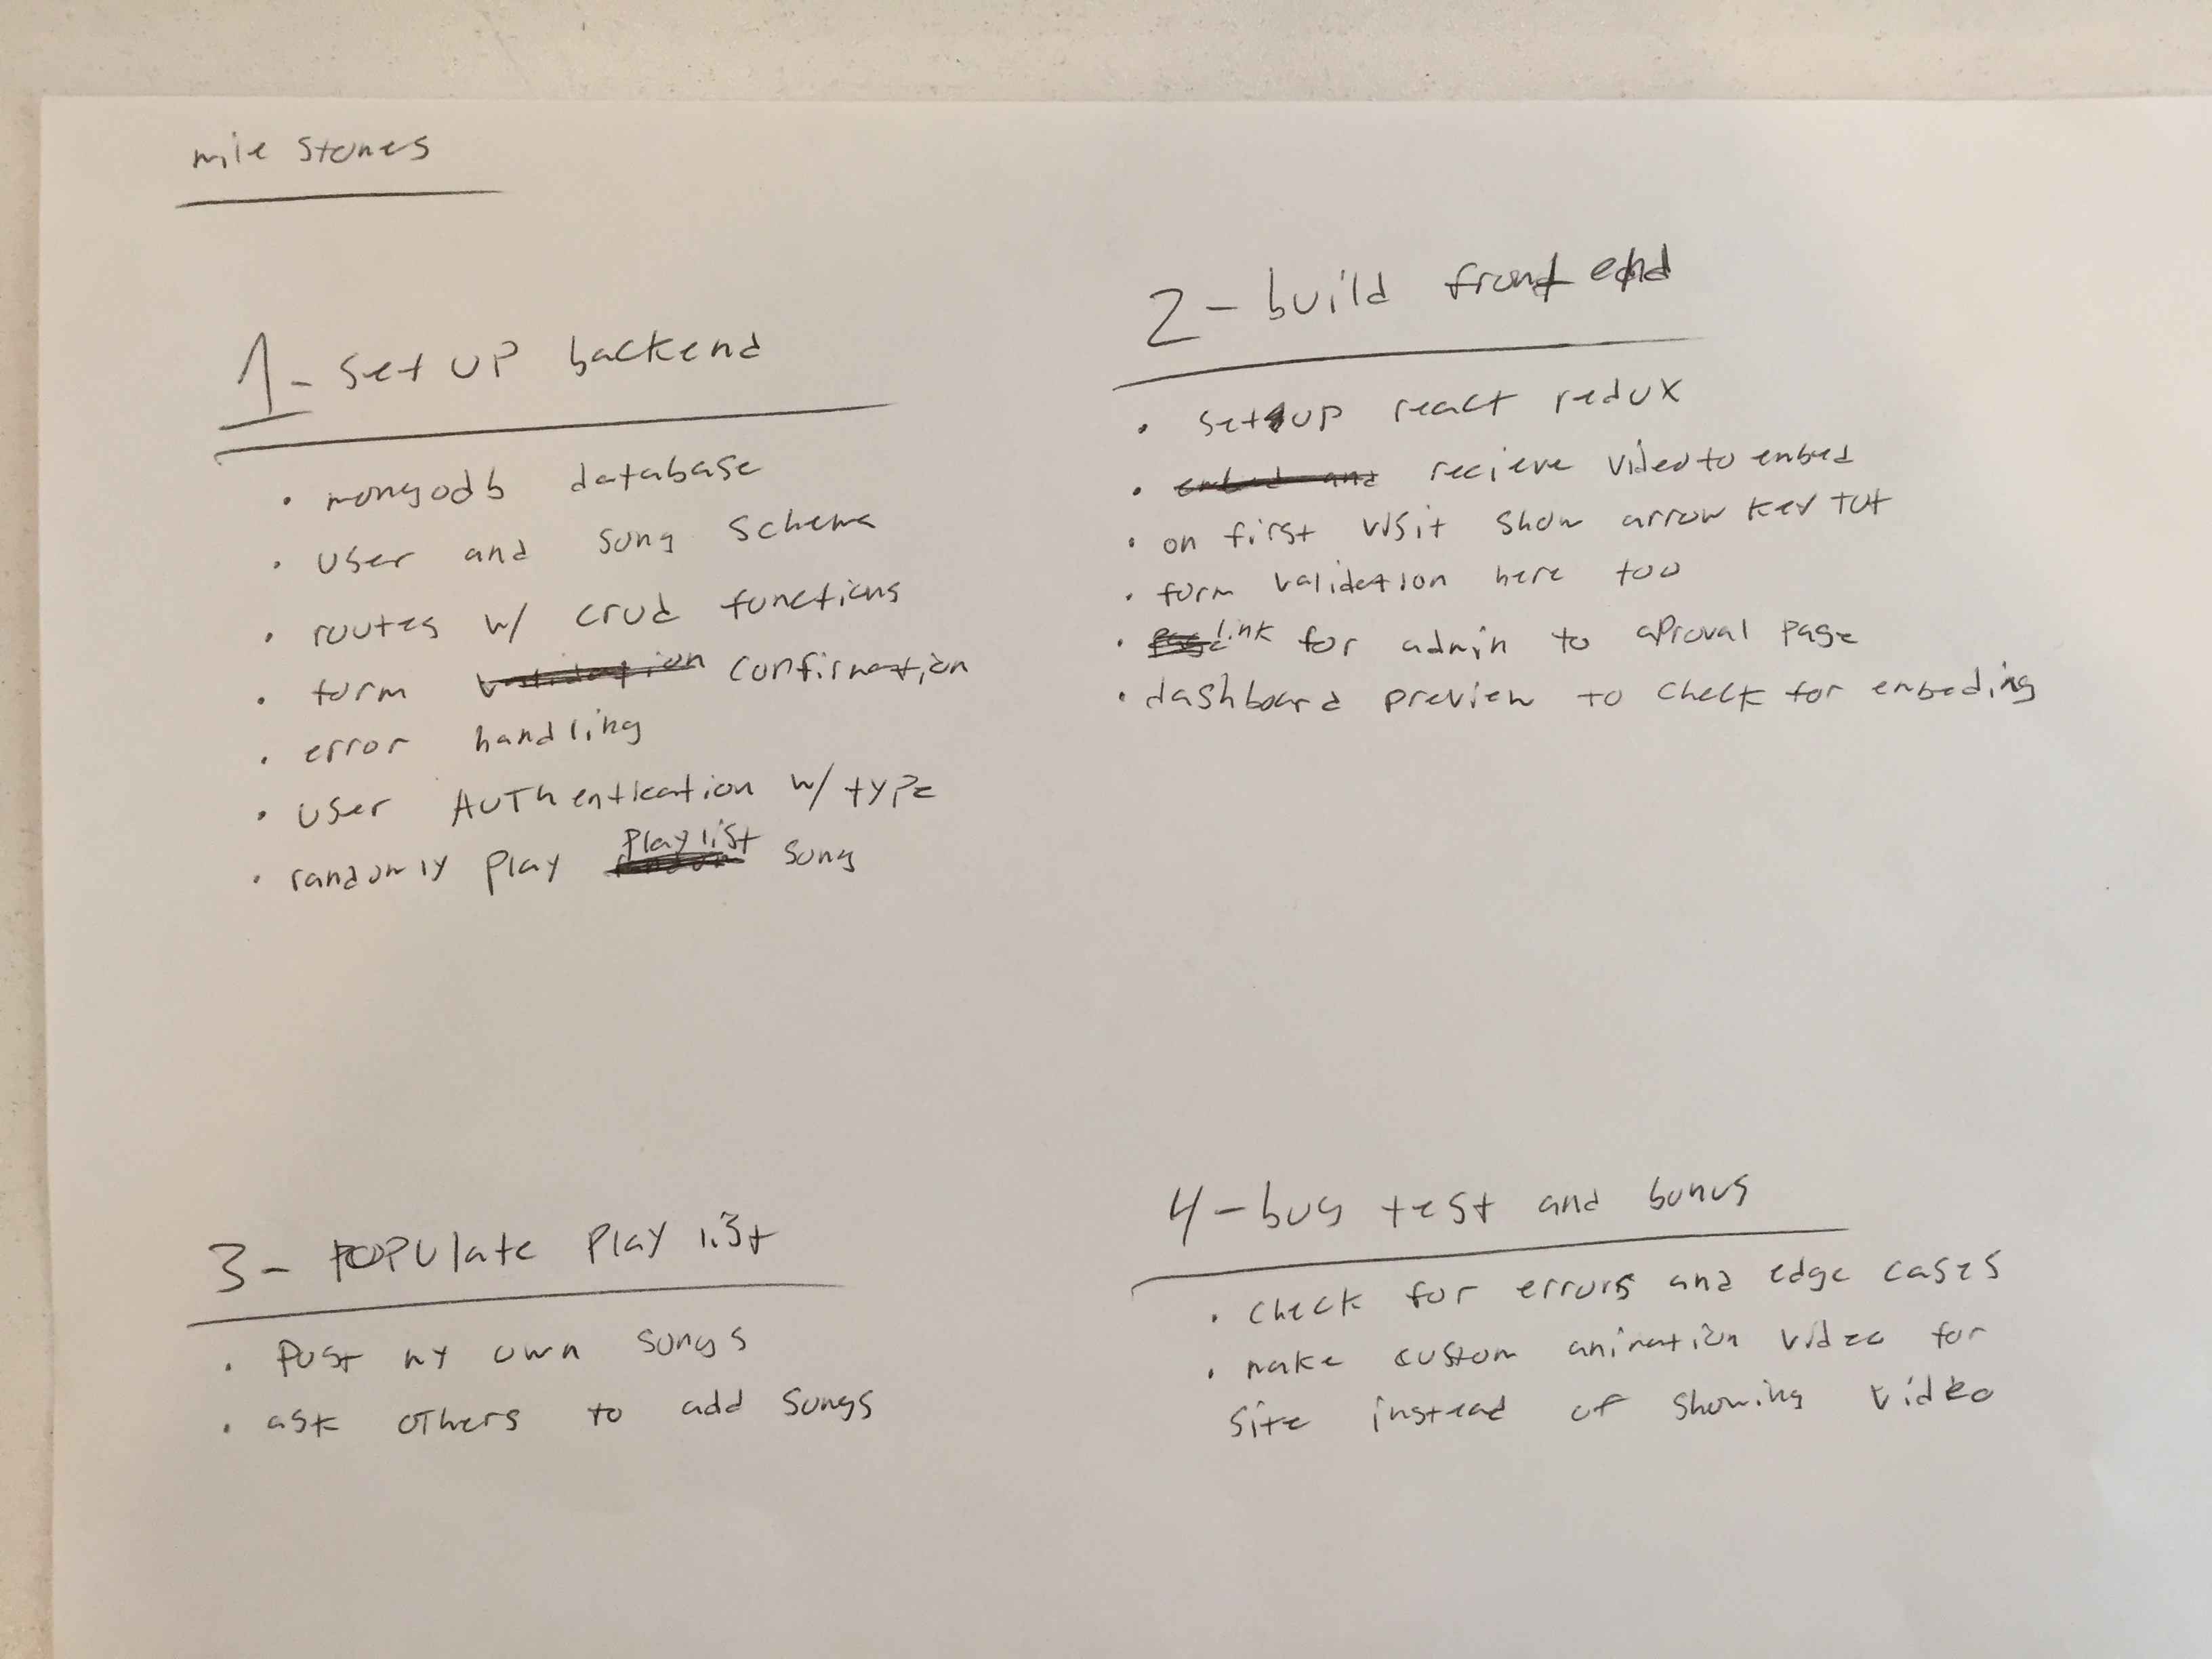 mile stones
1 - set up backend
• mongodb database
• user and song schema
• routes w/ crud functions
• form validation confirmation
• error handling
• user AUTHentication w/ type
• randomly play playlist song
2 - build front end
• setup react redux
• embed and recieve video to embed
• on first visit show arrow key tut
• form validation here too
• link for admin to aproval page
• dashboard preview to check for embeding
3 - populate play list
• post my own songs
• ask others to add songs
4 - bug test and bonus
• check for errors and edge cases
• make custom animation video for
site instead of showing video